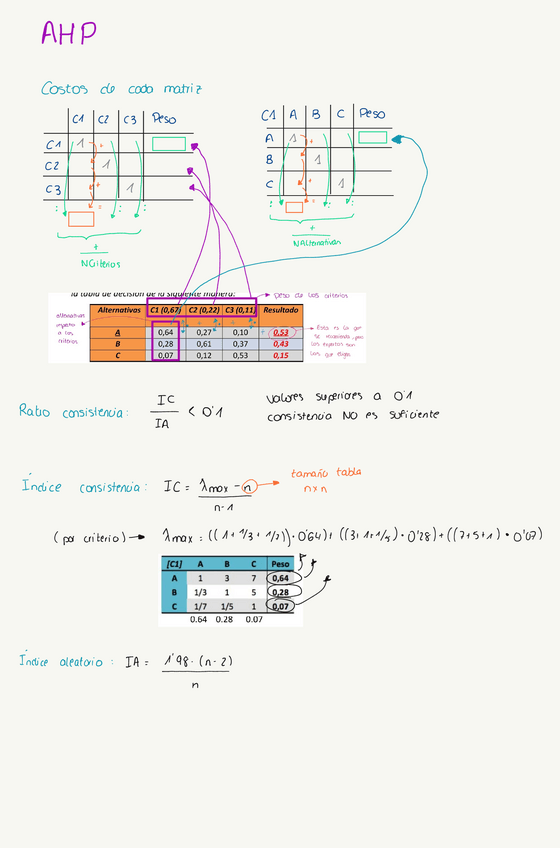 AHP
Costos de cada matriz
C1 C2 C3 Peso
C1 1
C2 1
C3 1
+
+
=
: : :
+
NCriterios
C1 A B C Peso
A 1
B 1
C 1
+
+
=
: : :
+
NAlternativas
la tabla de decisión de la siguiente manera:
Peso de los criterios
Alternativas C1 (0,67) C2 (0,22) C3 (0,11) Resultado
A 0,64 0,27 0,10 0,53
B 0,28 0,61 0,37 0,43
C 0,07 0,12 0,53 0,15
alternativas
respecto
a los
criterios
Esta es la que
se recomienda, pero
los expertos son
los que eligen
Ratio consistencia: IC / IA < 0'1
Valores superiores a 0'1
consistencia NO es suficiente
Índice consistencia: IC = λmax - n / n-1
tamaño tabla
n x n
(por criterio) → λmax = ((1+1/3+1/7)·0'64)+((3+1+1/5)·0'28)+((7+5+1)·0'07)
[C1] A B C Peso
A 1 3 7 0,64
B 1/3 1 5 0,28
C 1/7 1/5 1 0,07
0.64 0.28 0.07
Índice aleatorio: IA = 1'98·(n-2) / n